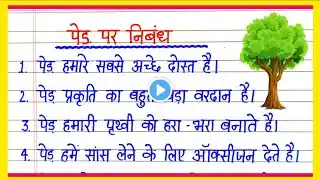 पेड़ पर निबंध
1. पेड़ हमारे सबसे अच्छे दोस्त है।
2. पेड़ प्रकृति का बहुत बड़ा वरदान है।
3. पेड़ हमारी पृथ्वी को हरा-भरा बनाते है।
4. पेड़ हमें सांस लेने के लिए ऑक्सीजन देते है।